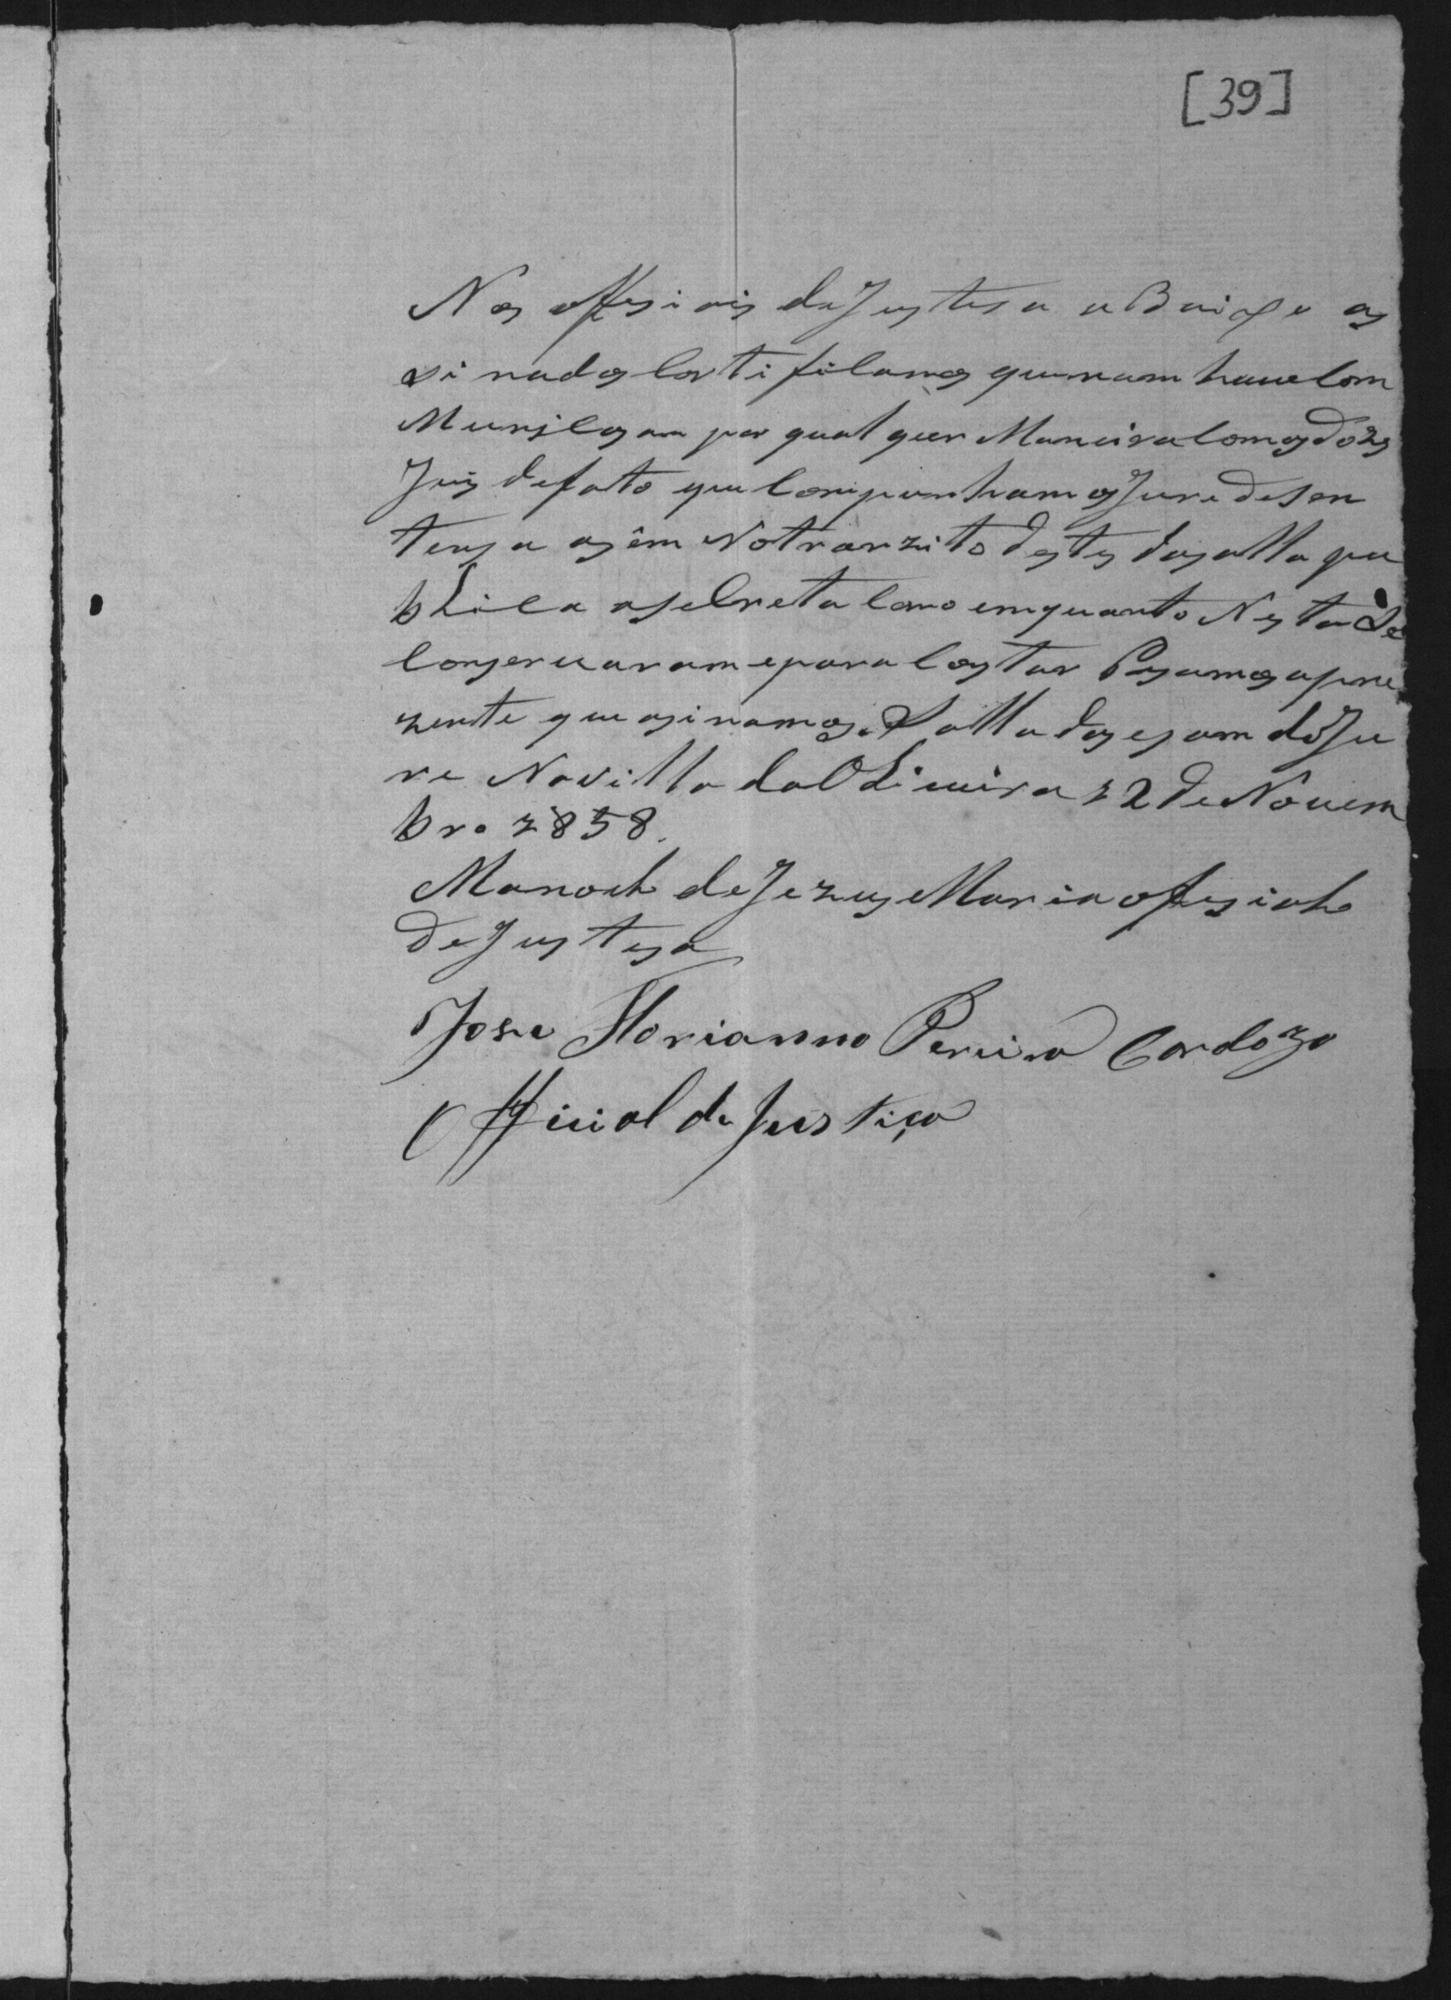 [39]
Nos offesiais de Justesa a Baixo as
sinados certificamos que nam houve com
Municasam por qual quer Maneira com os dôzes
Juis de fato que compunham o Jure de Sen
tensa asêm No tranzito desta da salla pu
blica a secreta como em quanto Nesta Se
conservaram e para constar Pasamos a pre
zente que asinamos. Salla das esam do Ju
re Na villa da Oliveira 22 de Novem
bro 1858.
Manoel de Jezus Maria ofesial
de Justesa
Jose Florianno Pereira Cardozo
Official de Justiça